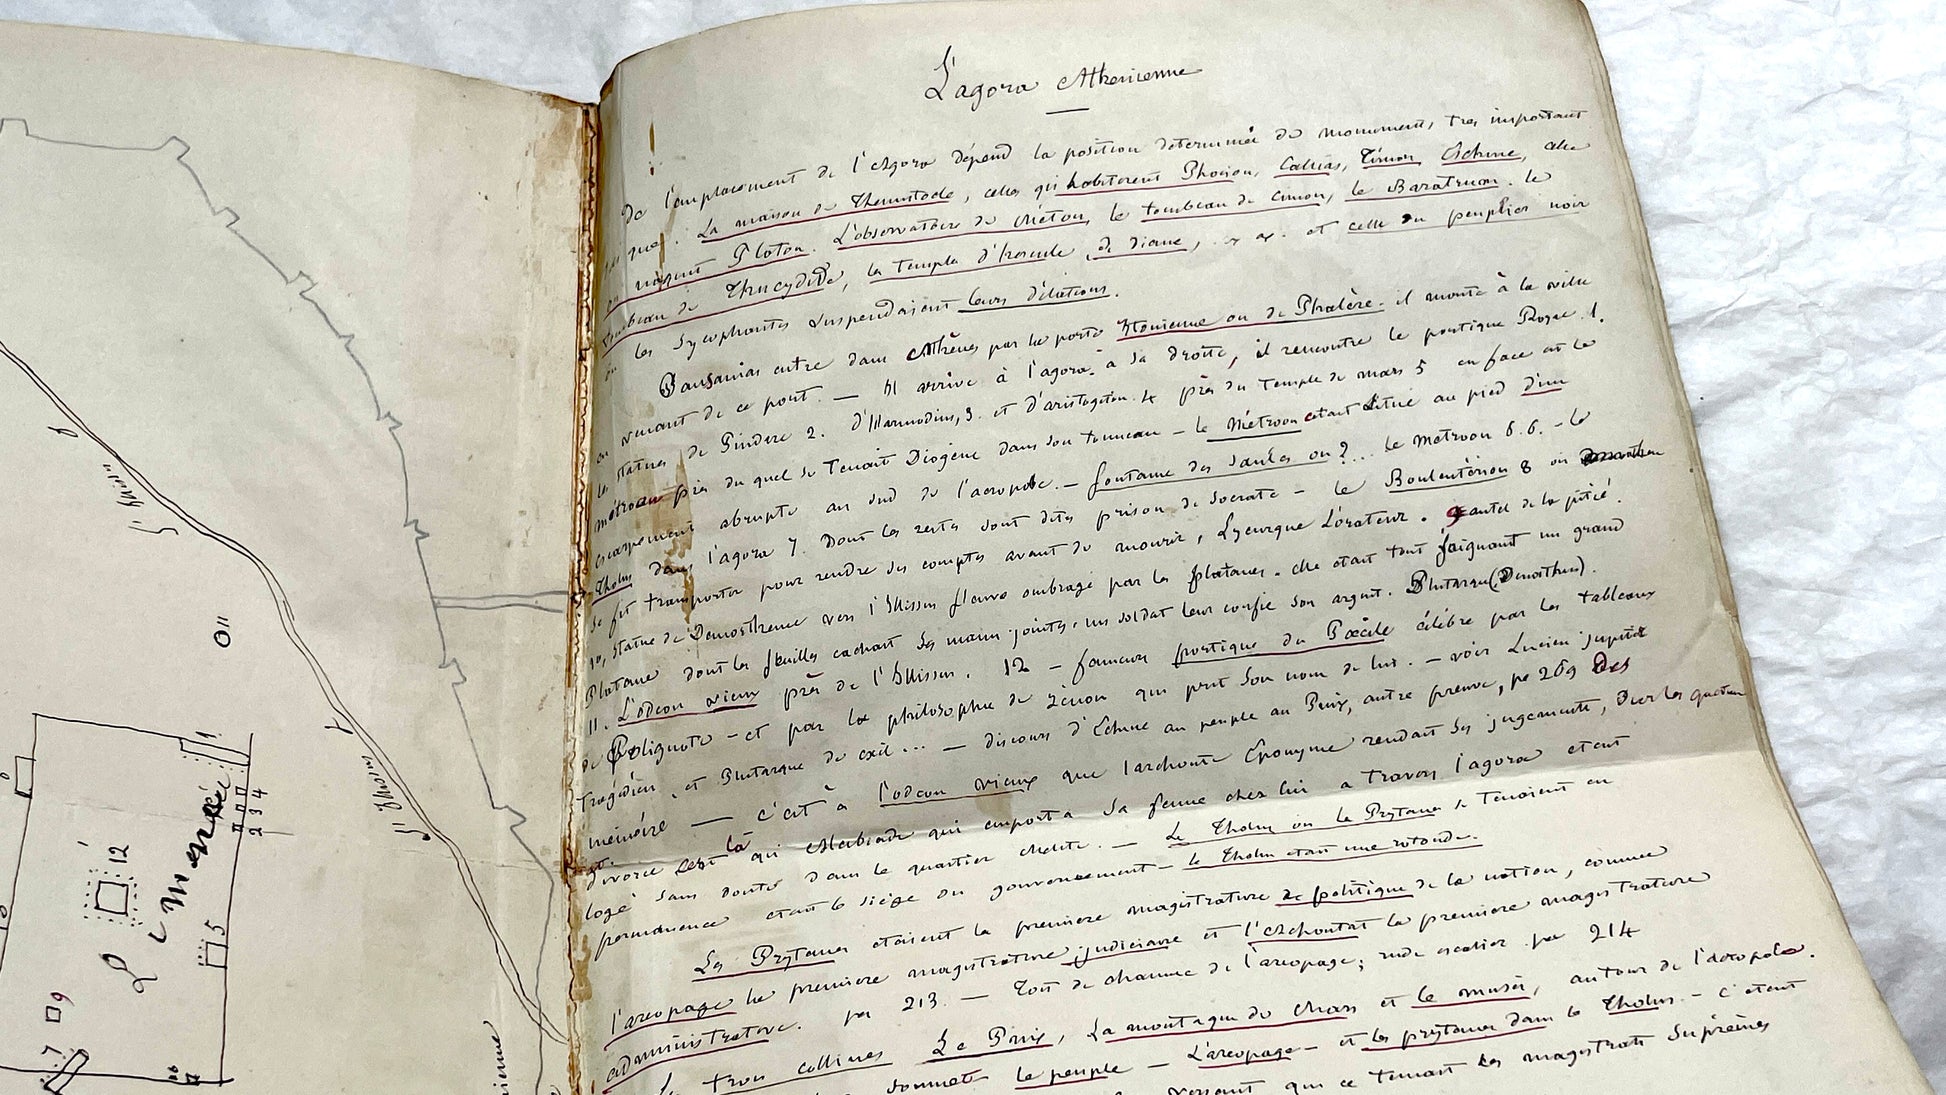 L'agora Athenienne
De l'emplacement de l'Agora dépend la position déterminée de monuments, très important
tels que. La maison de Themistocle, celles qu'habiterent Phocion, Callias, Timon Eschine, celle
ou naquit Platon. L'observatoire de Méton, le tombeau de Cimon, le Baratrum. le
tombeau de Thucydide, les temples d'hercule, de diane, et celle du peuplier noir
ou les Sycophantes suspendaient leurs délations.
Pausanias entre dans Athènes par la porte Itonienne ou de Phalère. il monte à la ville
en venant de ce port. — Il arrive à l'agora. à sa droite, il rencontre le portique Royal 1.
les statues de Pindare 2. d'Harmodius, 3. et d'aristogiton. 4 près du temple de mars 5 en face est le
métroon près du quel se tenait Diogène dans son tonneau — le Métroon etait situé au pied d'un
escarpement abrupte au sud de l'acropole. — fontaine des saules ou ?... le métroon 6.6. — le
Tholus dans l'agora 7. Dont les restes sont dits prison de Socrate — le Bouleutérion 8 ou
se fit transporter pour rendre ses comptes avant de mourir, Lycurgue L'orateur. 9 autel de la pitié.
10, statue de Demosthene vers l'Illissus fleuve ombragé par les platanes. elle etait tout joignant un grand
Platane dont les feuilles cachant ses mains jointes. un soldat leur confie son argent. Plutarque (Demosthene).
11. L'odeon vieux près de l'Illissus. 12 — fameux portique du Pœcile célèbre par les tableaux
de Polignote — et par la philosophie de zenon qui prit son nom de lui. — voir Lucien jupiter
Tragédien, et Plutarque de exil... — discours d'Echine au peuple au Pnix, autre preuve, pe 269 Des
mémoire — c'est à l'odeon vieux que l'archonte Eponyme rendait ses jugements,
divorce c'est là qu'Alcibiade qui emporta sa femme chez lui a travers l'agora etait
logé sans doute dans le quartier Melite. — Le Tholus ou les Prytanes se tenaient en
permanence etait le siège du gouvernement — le Tholus etait une rotonde.
Les Prytanes etaient la premiere magistrature de politique de la nation, comme
l'areopage la premiere magistrature judiciaire et l'archontat la premiere magistrature
administrative. pe 213. — Toit de chaume de l'areopage; rude escalier pe 214
Les trois collines Le Pnix, La montagne de Mars et le musée, autour de l'acropole.
sommet le peuple — L'areopage — et les prytanes dans le Tholus — c'etait
versant que se tenait les magistrats suprêmes
L'Illissus
L'Illissus
Le Musée
1
2 3 4
5
7
9
11
12